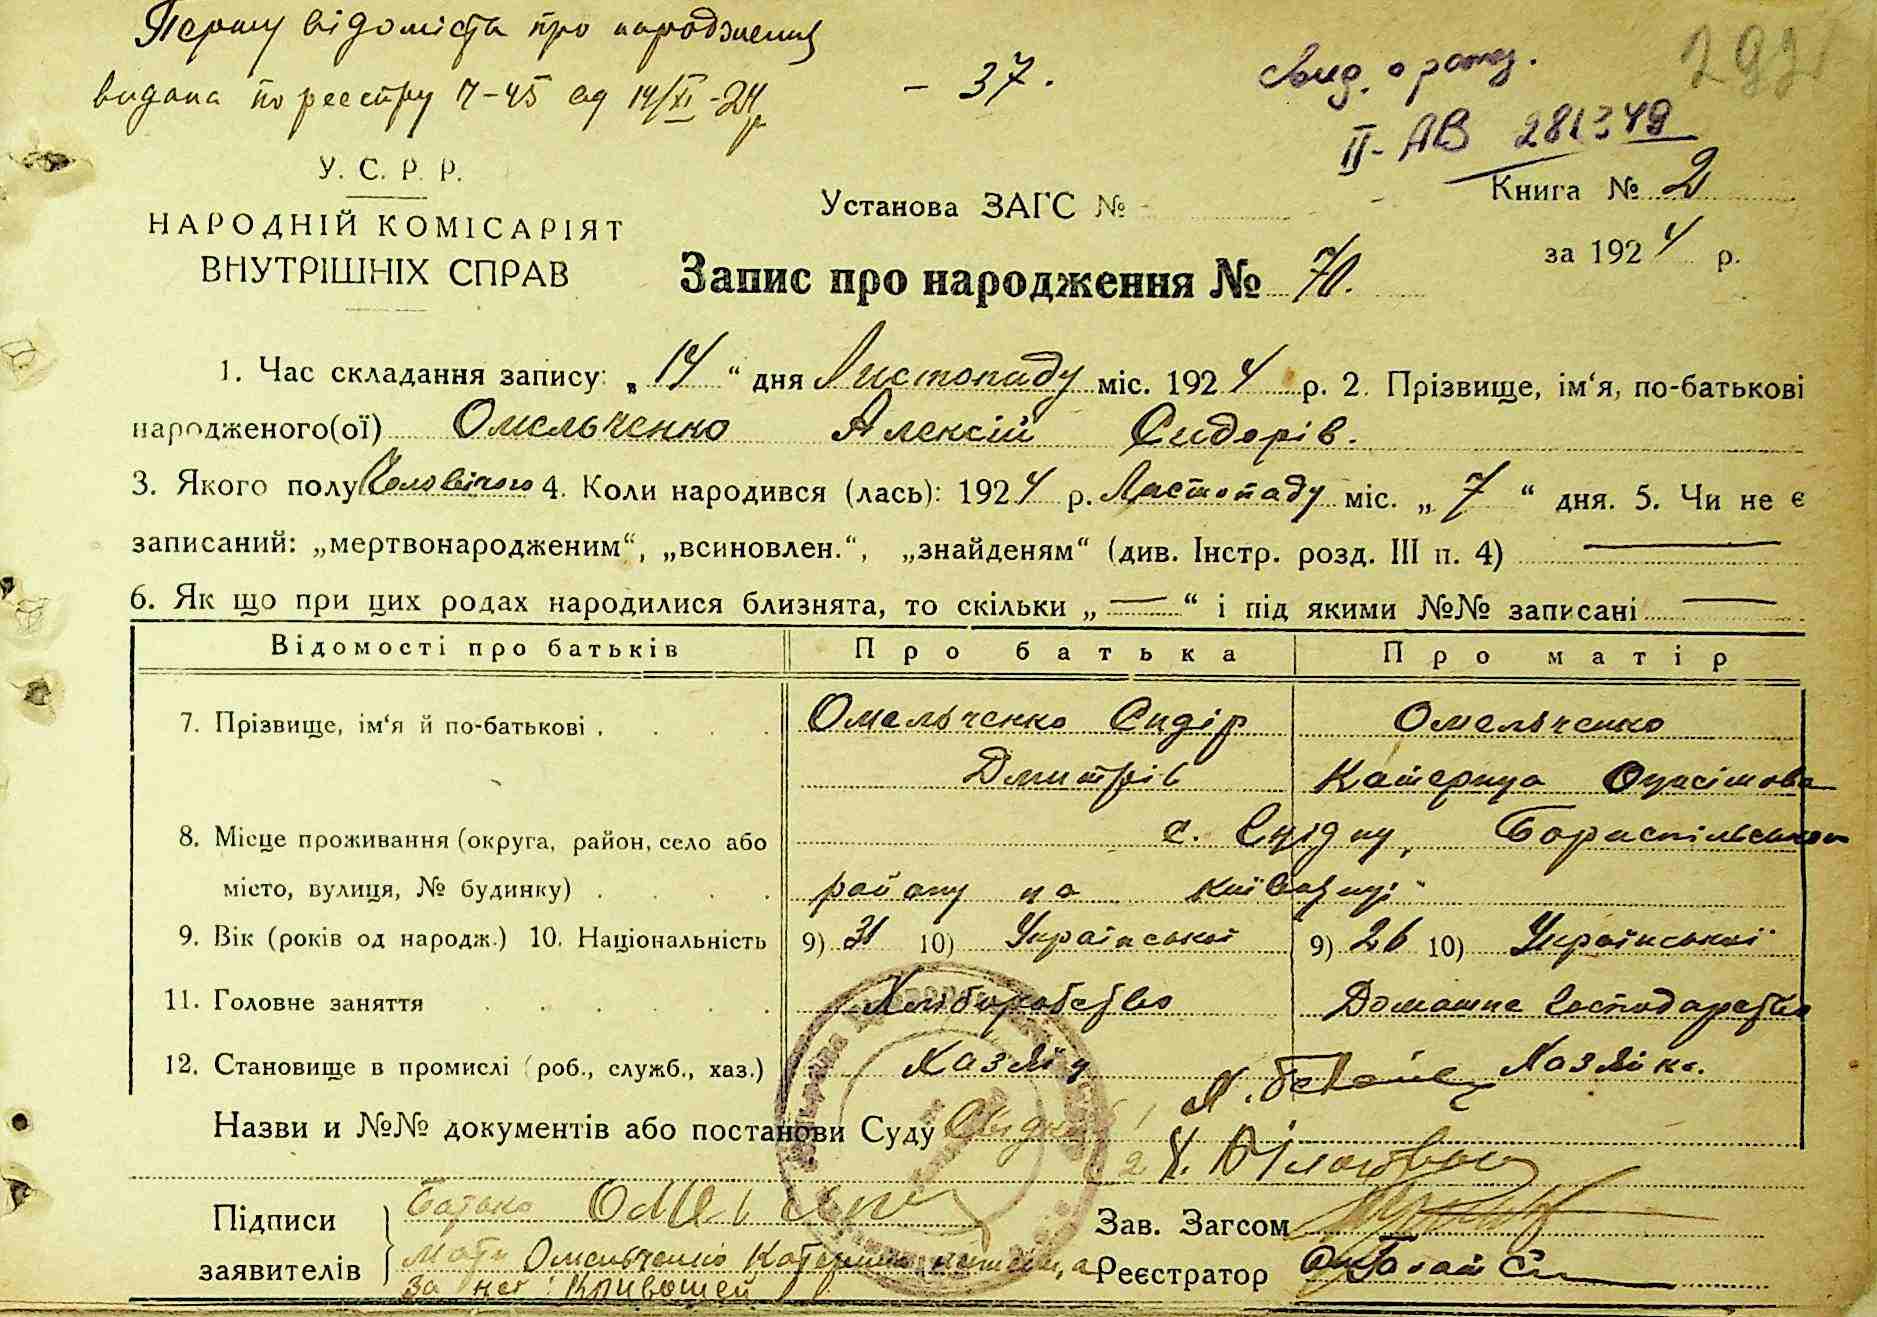 Першу відомість про народження
видана по реєстру 7-45 од 14/XI-24 р
- 37.
Свид. о рожд.
II-АВ 281349
У. С. Р. Р.
НАРОДНІЙ КОМІСАРІЯТ
ВНУТРІШНІХ СПРАВ
Установа ЗАГС №
Книга № 2
за 1924 р.
Запис про народження № 70.
1. Час складання запису: „14“ дня Листопаду міс. 1924 р. 2. Прізвище, ім‘я, по-батькові
народженого(ої) Омельченко Алексій Сидорів.
3. Якого полу Чоловічого 4. Коли народився (лась): 1924 р. Листопаду міс. „7“ дня. 5. Чи не є
записаний: „мертвонародженим“, „всиновлен.“, „знайденям“ (див. Інстр. розд. III п. 4) —
6. Як що при цих родах народилися близнята, то скільки „—“ і під якими №№ записані —
Відомості про батьків Про батька Про матір
7. Прізвище, ім‘я й по-батькові Омельченко Сидір Омельченко
Дмитрів Катерина Онисімова
8. Місце проживання (округа, район, село або с. Бориспільського
місто, вулиця, № будинку) району на Київщині
9. Вік (років од народж.) 10. Національність 9) 31 10) Української 9) 26 10) Української
11. Головне заняття Хліборобство Домашнє господарство
12. Становище в промислі (роб., служб., хаз.) Хазяїн Хазяйка.
Назви и №№ документів або постанови Суду
Підписи заявителів
Батько
Мати Омельченко Катерина
за неї: Кривошей
Зав. Загсом
Реєстратор